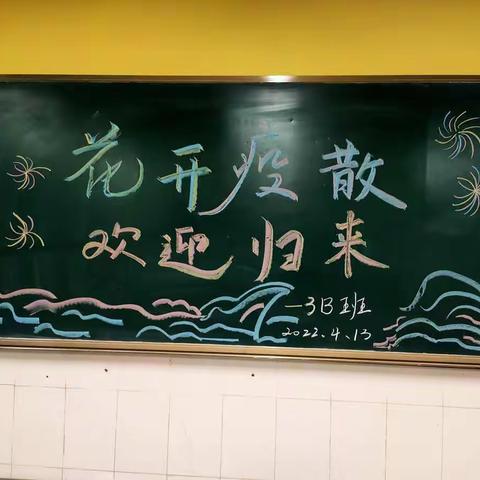 花开疫散
欢迎归来
一3B班
2022.4.13